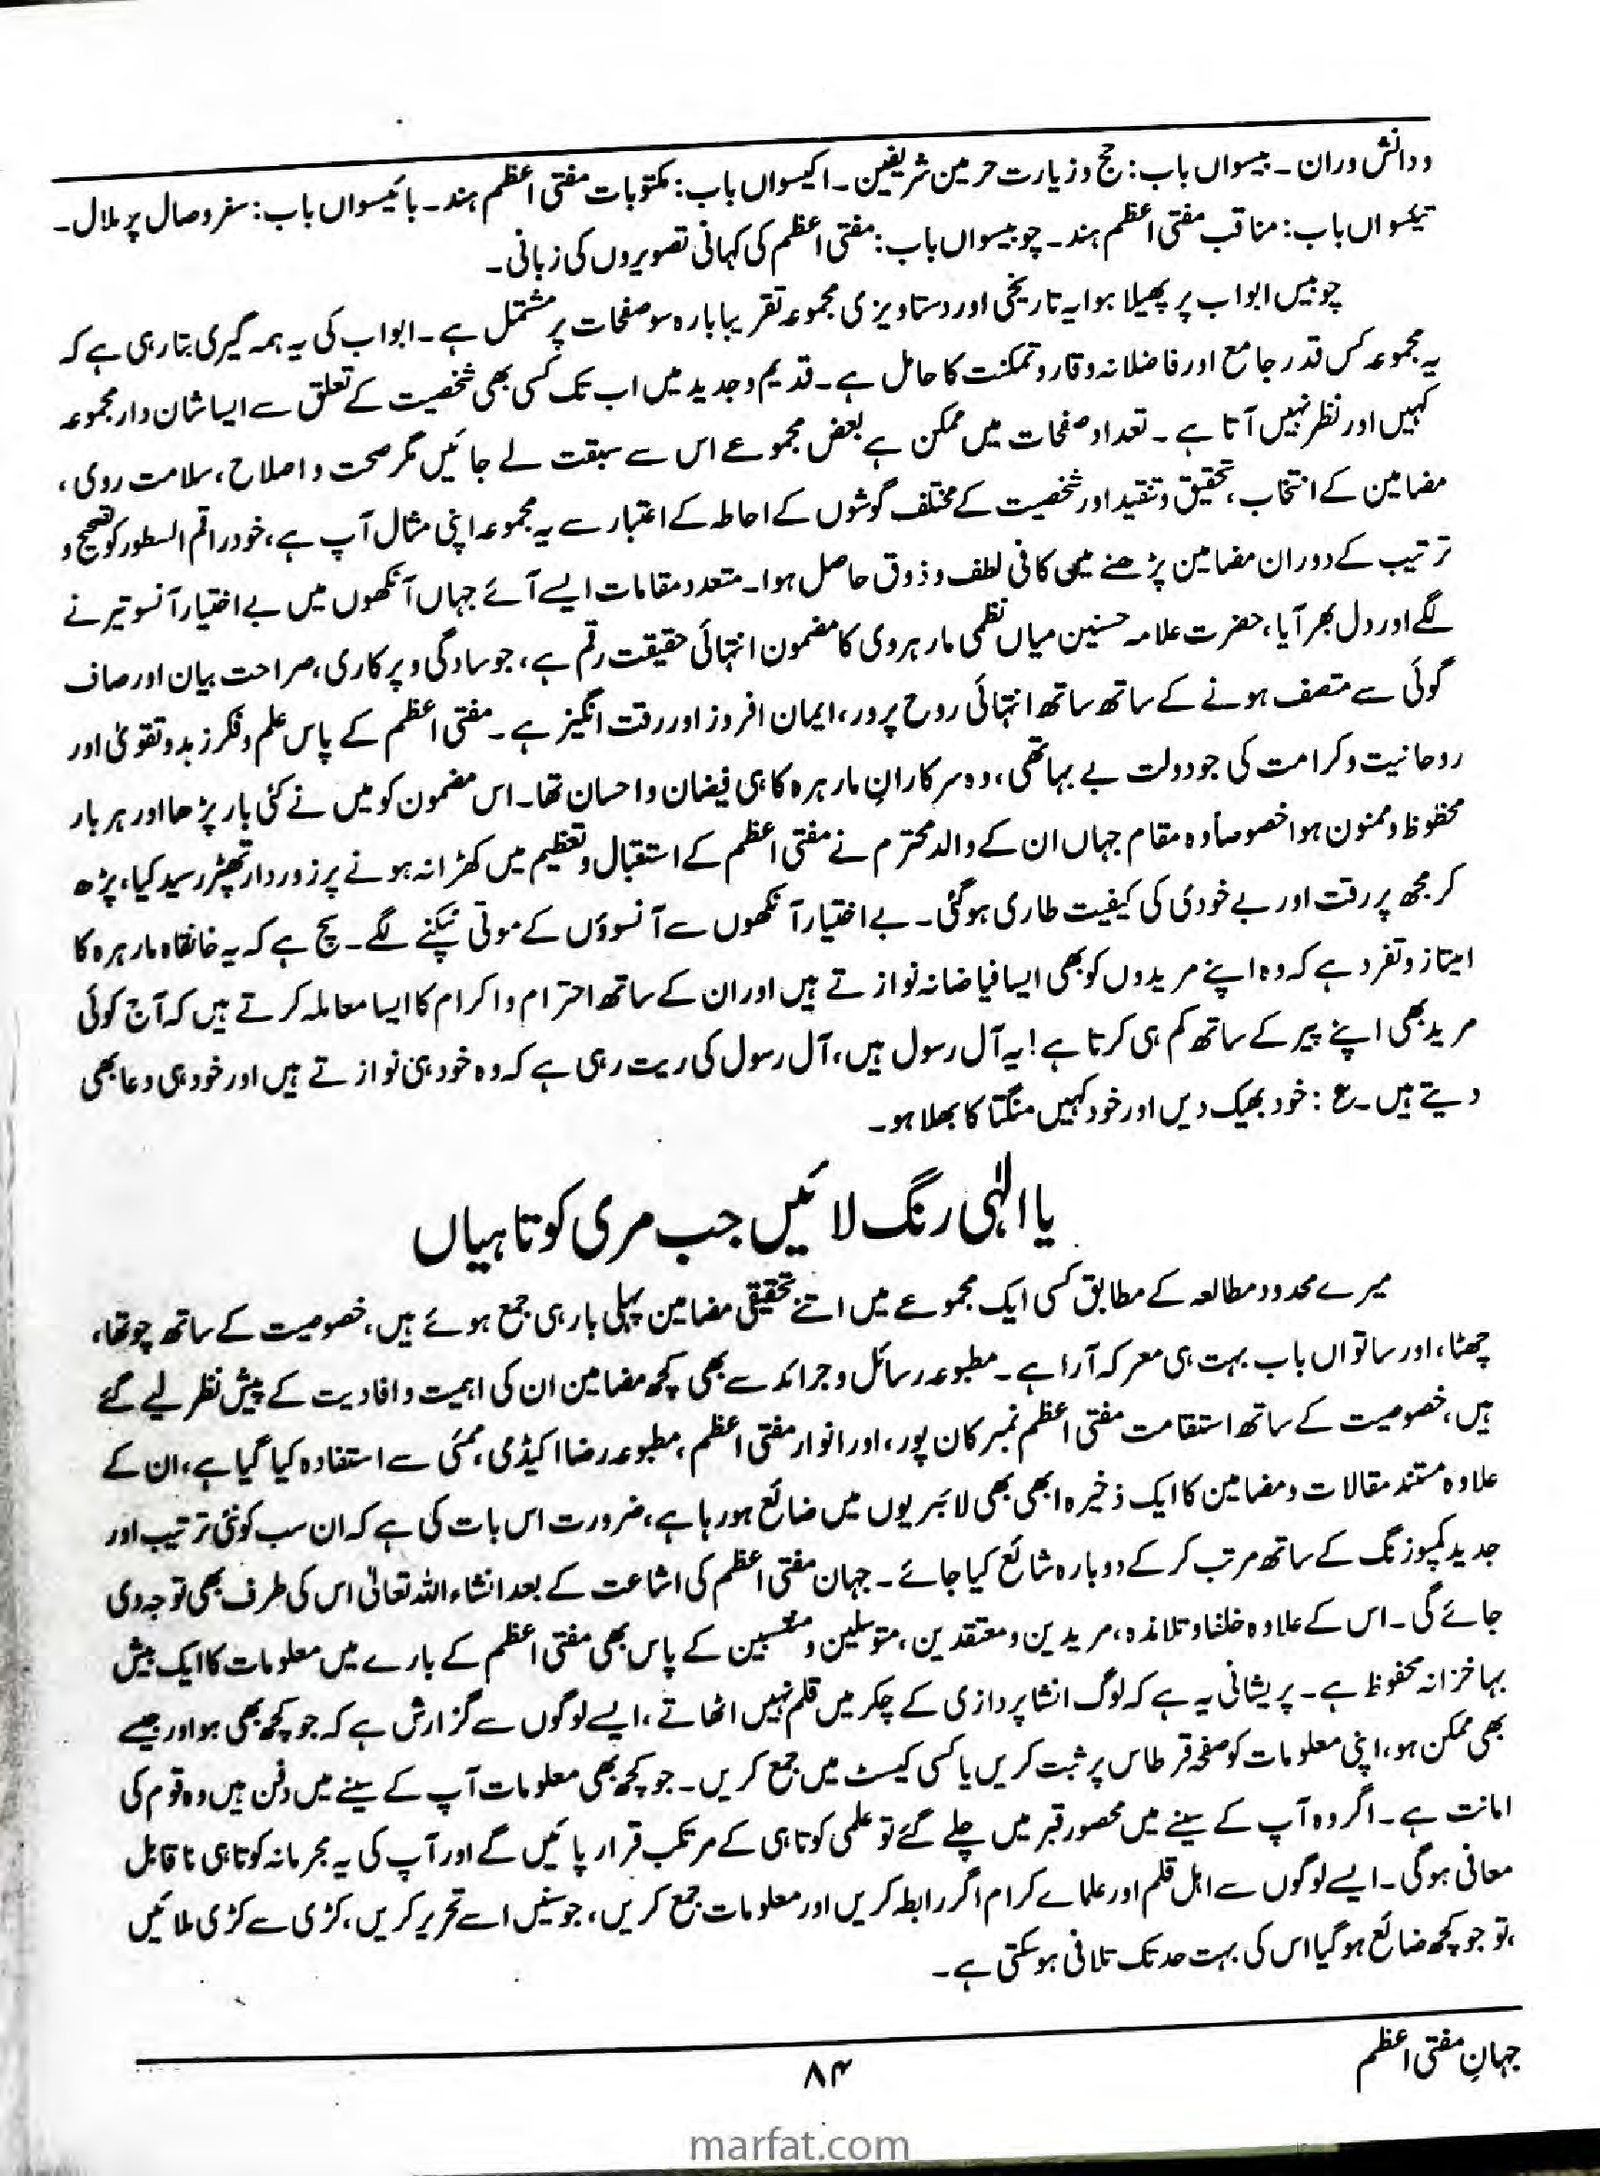 ودانش وران۔ بیسواں باب: حج وزیارت حرمین شریفین۔ اکیسواں باب: مکتوبات مفتی اعظم ہند۔ بائیسواں باب: سفر وصال پر ملال۔
تیئسواں باب: مناقب مفتی اعظم ہند۔ چوبیسواں باب: مفتی اعظم کی کہانی تصویروں کی زبانی۔
چوبیس ابواب پر پھیلا ہوا یہ تاریخی اور دستاویزی مجموعہ تقریبا بارہ سو صفحات پر مشتمل ہے۔ ابواب کی یہ ہمہ گیری بتا رہی ہے کہ
یہ مجموعہ کس قدر جامع اور فاضلانہ وقار و تمکنت کا حامل ہے۔ قدیم و جدید میں اب تک کسی بھی شخصیت کے تعلق سے ایسا شان دار مجموعہ
کہیں اور نظر نہیں آتا ہے۔ تعداد صفحات میں ممکن ہے بعض مجموعے اس سے سبقت لے جائیں مگر صحت و اصلاح، سلامت روی،
مضامین کے انتخاب، تحقیق و تنقید اور شخصیت کے مختلف گوشوں کے احاطہ کے اعتبار سے یہ مجموعہ اپنی مثال آپ ہے، خود راقم السطور کو تصحیح و
ترتیب کے دوران مضامین پڑھنے میں کافی لطف و ذوق حاصل ہوا۔ متعدد مقامات ایسے آئے جہاں آنکھوں میں بے اختیار آنسو تیرنے
لگے اور دل بھر آیا، حضرت علامہ حسنین میاں نظمی مارہروی کا مضمون انتہائی حقیقت رقم ہے، جو سادگی و پرکاری، صراحت بیان اور صاف
گوئی سے متصف ہونے کے ساتھ ساتھ انتہائی روح پرور، ایمان افروز اور رقت انگیز ہے۔ مفتی اعظم کے پاس علم و فکر زہد و تقویٰ اور
روحانیت و کرامت کی جو دولت بے بہا تھی، وہ سرکاران مارہرہ کا ہی فیضان و احسان تھا۔ اس مضمون کو میں نے کئی بار پڑھا اور ہر بار
محظوظ و ممنون ہوا خصوصاً وہ مقام جہاں ان کے والد محترم نے مفتی اعظم کے استقبال و تعظیم میں کھڑا نہ ہونے پر زور دار تھپڑ رسید کیا، پڑھ
کر مجھ پر رقت اور بے خودی کی کیفیت طاری ہوگئی۔ بے اختیار آنکھوں سے آنسوؤں کے موتی ٹپکنے لگے۔ سچ ہے کہ یہ خانقاہ مارہرہ کا
امتیاز و تفرد ہے کہ وہ اپنے مریدوں کو بھی ایسا فیاضانہ نوازتے ہیں اور ان کے ساتھ احترام و اکرام کا ایسا معاملہ کرتے ہیں کہ آج کوئی
مرید بھی اپنے پیر کے ساتھ کم ہی کرتا ہے! یہ آل رسول ہیں، آل رسول کی ریت رہی ہے کہ وہ خود ہی نوازتے ہیں اور خود ہی دعا بھی
دیتے ہیں۔ ع: خود بھیک دیں اور خود کہیں منگتا کا بھلا ہو۔
یا الٰہی رنگ لائیں جب مری کوتاہیاں
میرے محدود مطالعہ کے مطابق کسی ایک مجموعے میں اتنے تحقیقی مضامین پہلی بار ہی جمع ہوئے ہیں، خصوصیت کے ساتھ چوتھا،
چھٹا، اور ساتواں باب بہت ہی معرکہ آرا ہے۔ مطبوعہ رسائل و جرائد سے بھی کچھ مضامین ان کی اہمیت و افادیت کے پیش نظر لیے گئے
ہیں، خصوصیت کے ساتھ استقامت مفتی اعظم نمبر کان پور، اور انوار مفتی اعظم، مطبوعہ رضا اکیڈمی، ممبئی سے استفادہ کیا گیا ہے، ان کے
علاوہ مستند مقالات و مضامین کا ایک ذخیرہ ابھی بھی لائبریوں میں ضائع ہو رہا ہے، ضرورت اس بات کی ہے کہ ان سب کو نئی ترتیب اور
جدید کمپوزنگ کے ساتھ مرتب کر کے دوبارہ شائع کیا جائے۔ جہان مفتی اعظم کی اشاعت کے بعد انشاء اللہ تعالیٰ اس کی طرف بھی توجہ دی
جائے گی۔ اس کے علاوہ خلفا و تلامذہ، مریدین و معتقدین، متوسلین و منتسبین کے پاس بھی مفتی اعظم کے بارے میں معلومات کا ایک بیش
بہا خزانہ محفوظ ہے۔ پریشانی یہ ہے کہ لوگ انشا پردازی کے چکر میں قلم نہیں اٹھاتے، ایسے لوگوں سے گزارش ہے کہ جو کچھ بھی ہو اور جیسے
بھی ممکن ہو، اپنی معلومات کو صفحہ قرطاس پر ثبت کریں یا کسی کیسٹ میں جمع کریں۔ جو کچھ بھی معلومات آپ کے سینے میں دفن ہیں وہ قوم کی
امانت ہے۔ اگر وہ آپ کے سینے میں محصور قبر میں چلے گئے تو علمی کوتاہی کے مرتکب قرار پائیں گے اور آپ کی یہ مجرمانہ کوتاہی ناقابل
معافی ہوگی۔ ایسے لوگوں سے اہل قلم اور علماے کرام اگر رابطہ کریں اور معلومات جمع کریں، جو سنیں اسے تحریر کریں، کڑی سے کڑی ملائیں
،تو جو کچھ ضائع ہوگیا اس کی بہت حد تک تلافی ہو سکتی ہے۔
جہانِ مفتی اعظم
۸۴
marfat.com